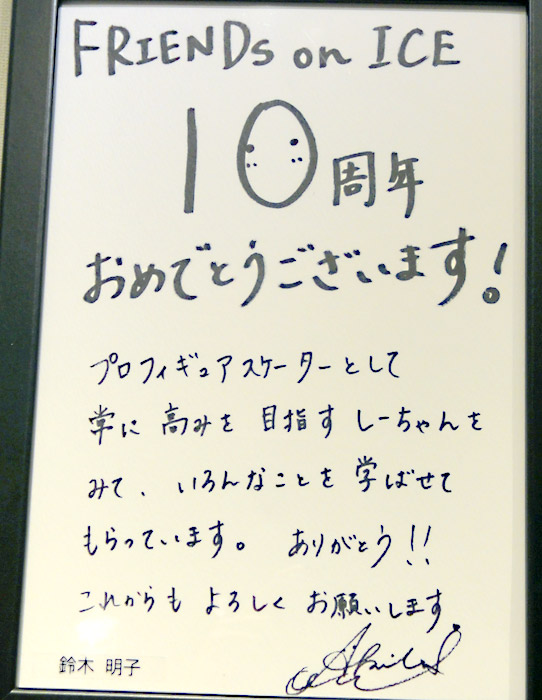 FRIENDs on ICE
10周年
おめでとうございます!
プロフィギュアスケーターとして
常に 高みを 目指す しーちゃんを
みて、いろんなことを 学ばせて
もらっています。 ありがとう!!
これからも よろしく お願いします。
鈴木 明子